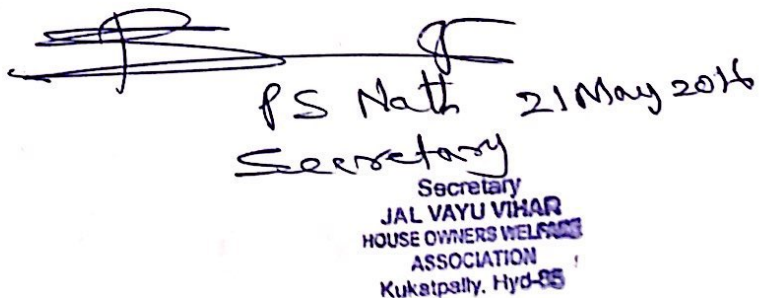 PS Nath 21 May 2016
Secretary
Secretary
JAL VAYU VIHAR
HOUSE OWNERS WELFARE
ASSOCIATION
Kukatpally, Hyd-85